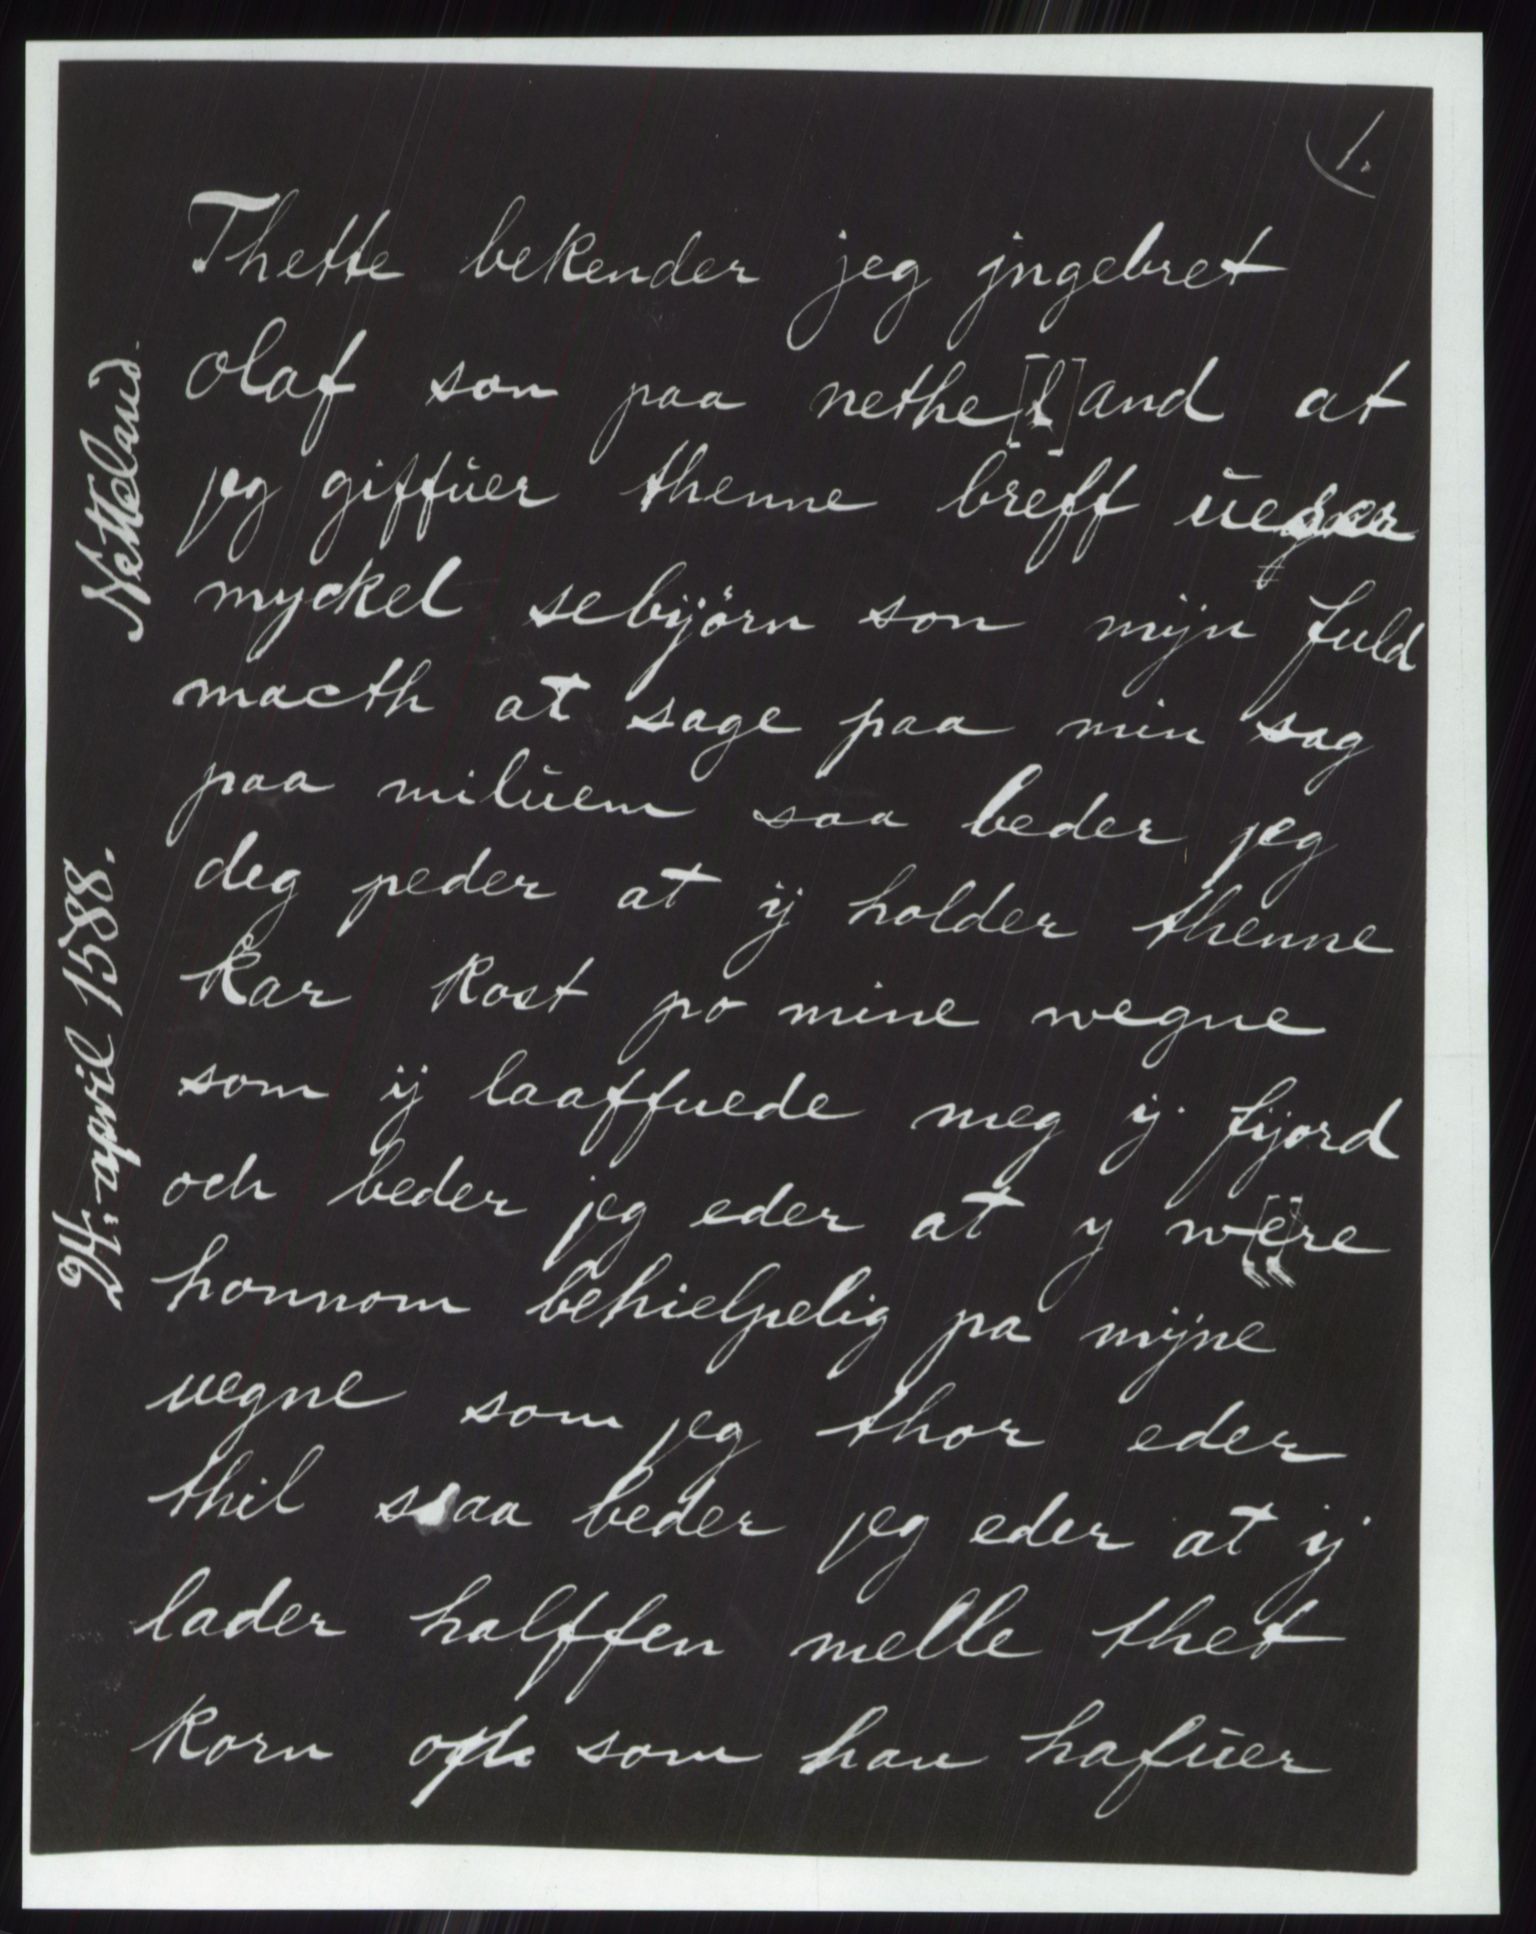 1.
Thette bekender jeg jngebret
olaf son paa nethe[l]and at
jeg giffůer thenne breff
myckel sebijörn son mijn fuld
macth at sage paa min sag
paa milůem saa beder jeg
deg peder at ij holder thenne
kar kost po mine wegne
som ij laaffuede meg ij fijord
och beder jeg eder at y w[e]re
honnom behielpelig pa mijne
uegne som jeg thor eder
thil saa beder jeg eder at ij
lader halffen melle thet
korn oph som han hafůer
Netteland.
24. april 1588.